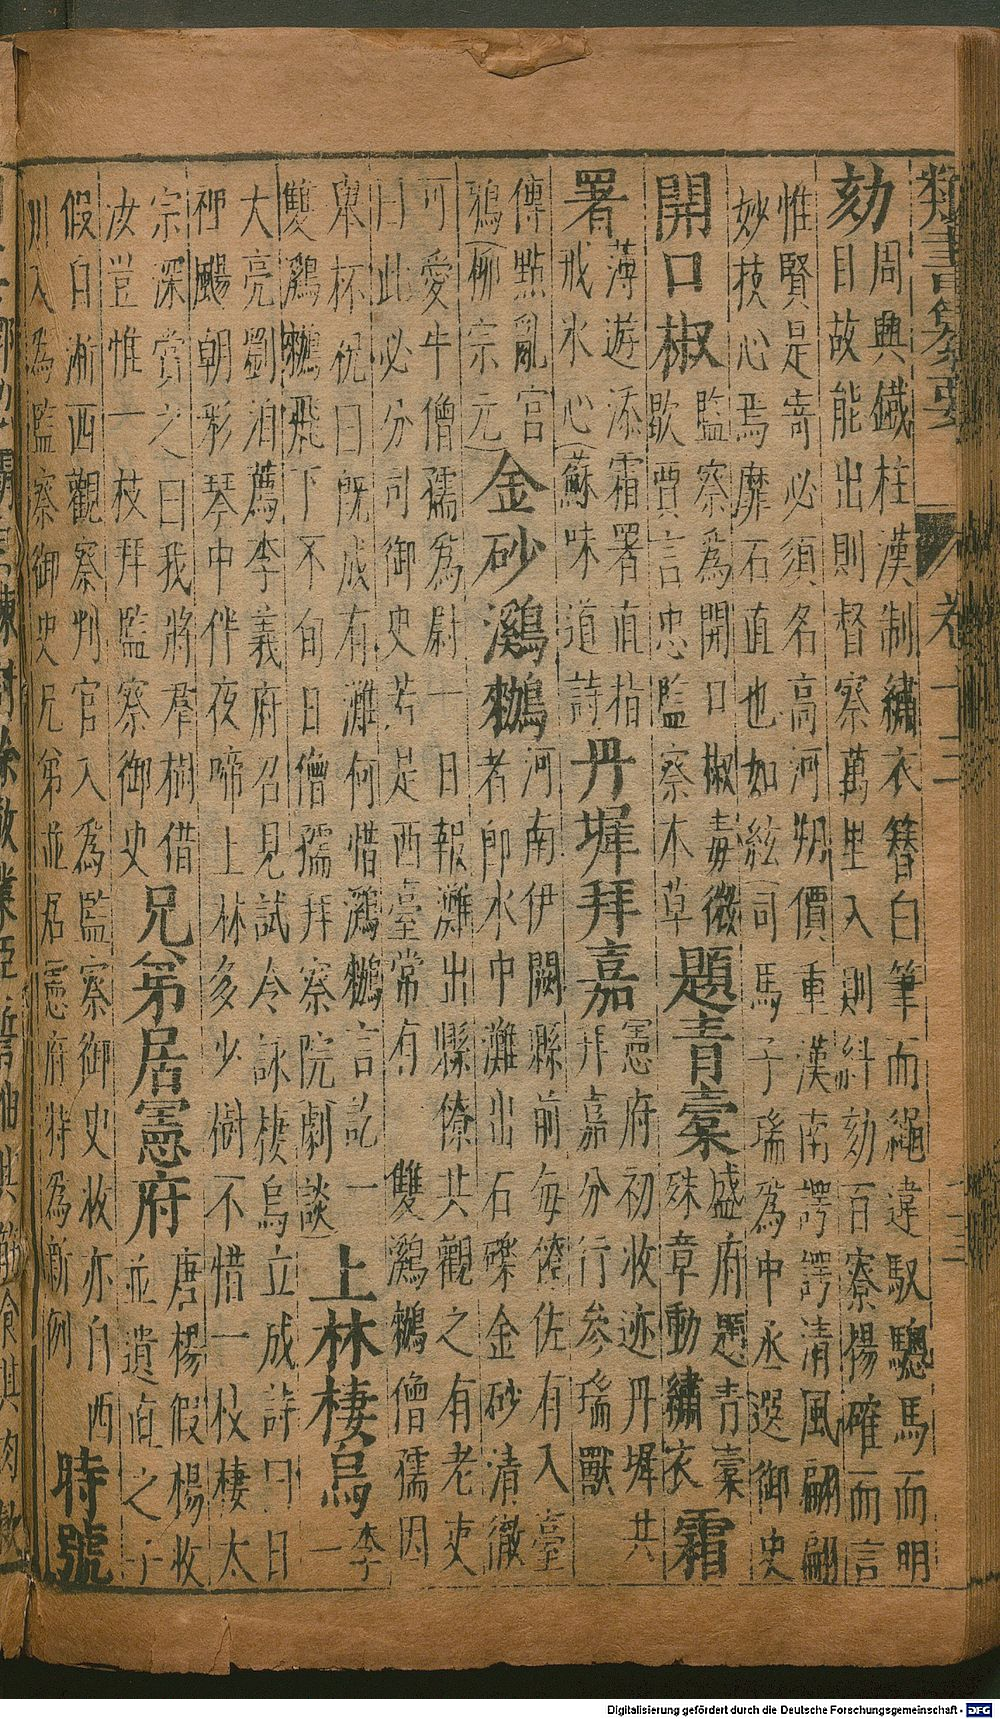 類書纂要 卷十三 二三
劾
周興鐵柱漢制繡衣簪白筆而繩違馭驄馬而明
目故能出則督察萬里入則糾劾百寮揚確而言
惟賢是寄必須名高河朔價重漢南諤諤清風翩翩
妙技心焉靡石直也如絃(司馬子瑞爲中丞選御史
開口椒
監察爲開口椒毒微
歇賈言忠監察本草
題青橐
盛府題青橐
殊章動繡衣
霜
署
薄遊添霜署直指
戒氷心(蘇味道詩
丹墀拜嘉
憲府初收迹丹墀共
拜嘉分行參瑞獸
傳點亂宮
鴉(柳宗元)
金砂鸂鶒
河南伊闕縣前每僚佐有入臺
者卽水中灘出石礫金砂清徹
可愛牛僧孺爲尉一日報灘出縣僚共觀之有老吏
曰此必分司御史若是西臺常有雙鸂鶒僧孺因
舉杯祝曰旣成有灘何惜鸂鶒言訖一
雙鸂鶒飛下不旬日僧孺拜察院劇談)
上林棲烏
李
大亮劉洎薦李義府召見試令詠棲烏立成詩曰日
裡颺朝彩琴中伴夜啼上林多少樹不惜一枝棲太
宗深賞之曰我將羣樹借
汝豈惟一枝拜監察御史
兄弟居憲府
唐楊假楊收
並遺直之子
假自淅西觀察判官入爲監察御史收亦自西
川入爲監察御史兄弟並居憲府特爲新例
時號
Digitalisierung gefördert durch die Deutsche Forschungsgemeinschaft - DFG